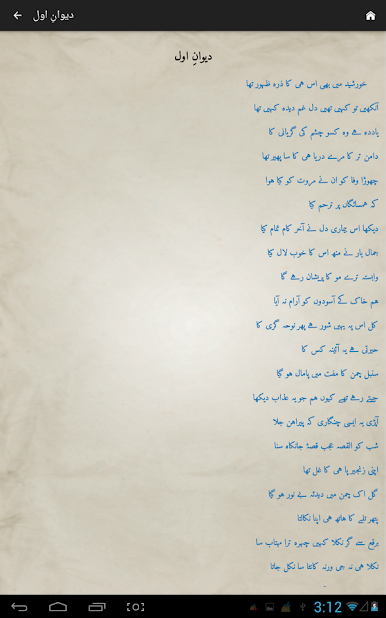 دیوانِ اول
دیوانِ اول
خورشید میں بھی اس ہی کا ذرہ ظہور تھا
آنکھیں تو کہیں تھیں دل غم دیدہ کہیں تھا
یاددہ ہے وہ کسو چشم کی گریانی کا
دامن تر کا مرے دریا ہی کا سا پھیر تھا
چھوڑا وفا کو ان نے مروت کو کیا ہوا
کہ ہمسائگاں پر ترحم کیا
دیکھا اس بیماری دل نے آخر کام تمام کیا
جمال یار نے منھ اس کا خوب لال کیا
وابستہ ترے مو کا پریشان رہے گا
ہم خاک کے آسودوں کو آرام نہ آیا
کل اس پہ یہیں شور ہے پھر نوحہ گری کا
حیرتی ہے یہ آئینہ کس کا
سنبل چمن کا مفت میں پامال ہو گیا
جیتے رہے تھے کیوں ہم جو یہ عذاب دیکھا
آپڑی یہ ایسی چنگاری کہ پیراہن جلا
شب کو القصہ عجب قصۂ جانکاہ سنا
اپنی زنجیر پا ہی کا غل تھا
گل اک چمن میں دیدۂ بے نور ہو گیا
پتھر تلے کا ہاتھ ہی اپنا نکالتا
برقع سے گر نکلا کہیں چہرہ ترا مہتاب سا
نکلا ہی نہ جی ورنہ کانٹا سا نکل جاتا
3:12